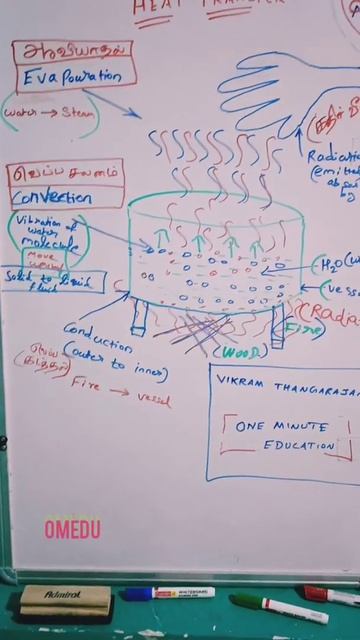 HEAT TRANSFER
ஆவியாதல்
Evapouration
Water → Steam
வெப்ப சலனம்
Convection
Vibration of
water
molecule
move
Solid to liquid
fluid
Radiation
(emitted
H₂O
vess
Radia
(Fire)
(WOOD)
Conduction
(outer to inner)
Fire → vessel
VIKRAM THANGARAJA
ONE MINUTE
EDUCATION
OMEDU
Admiral